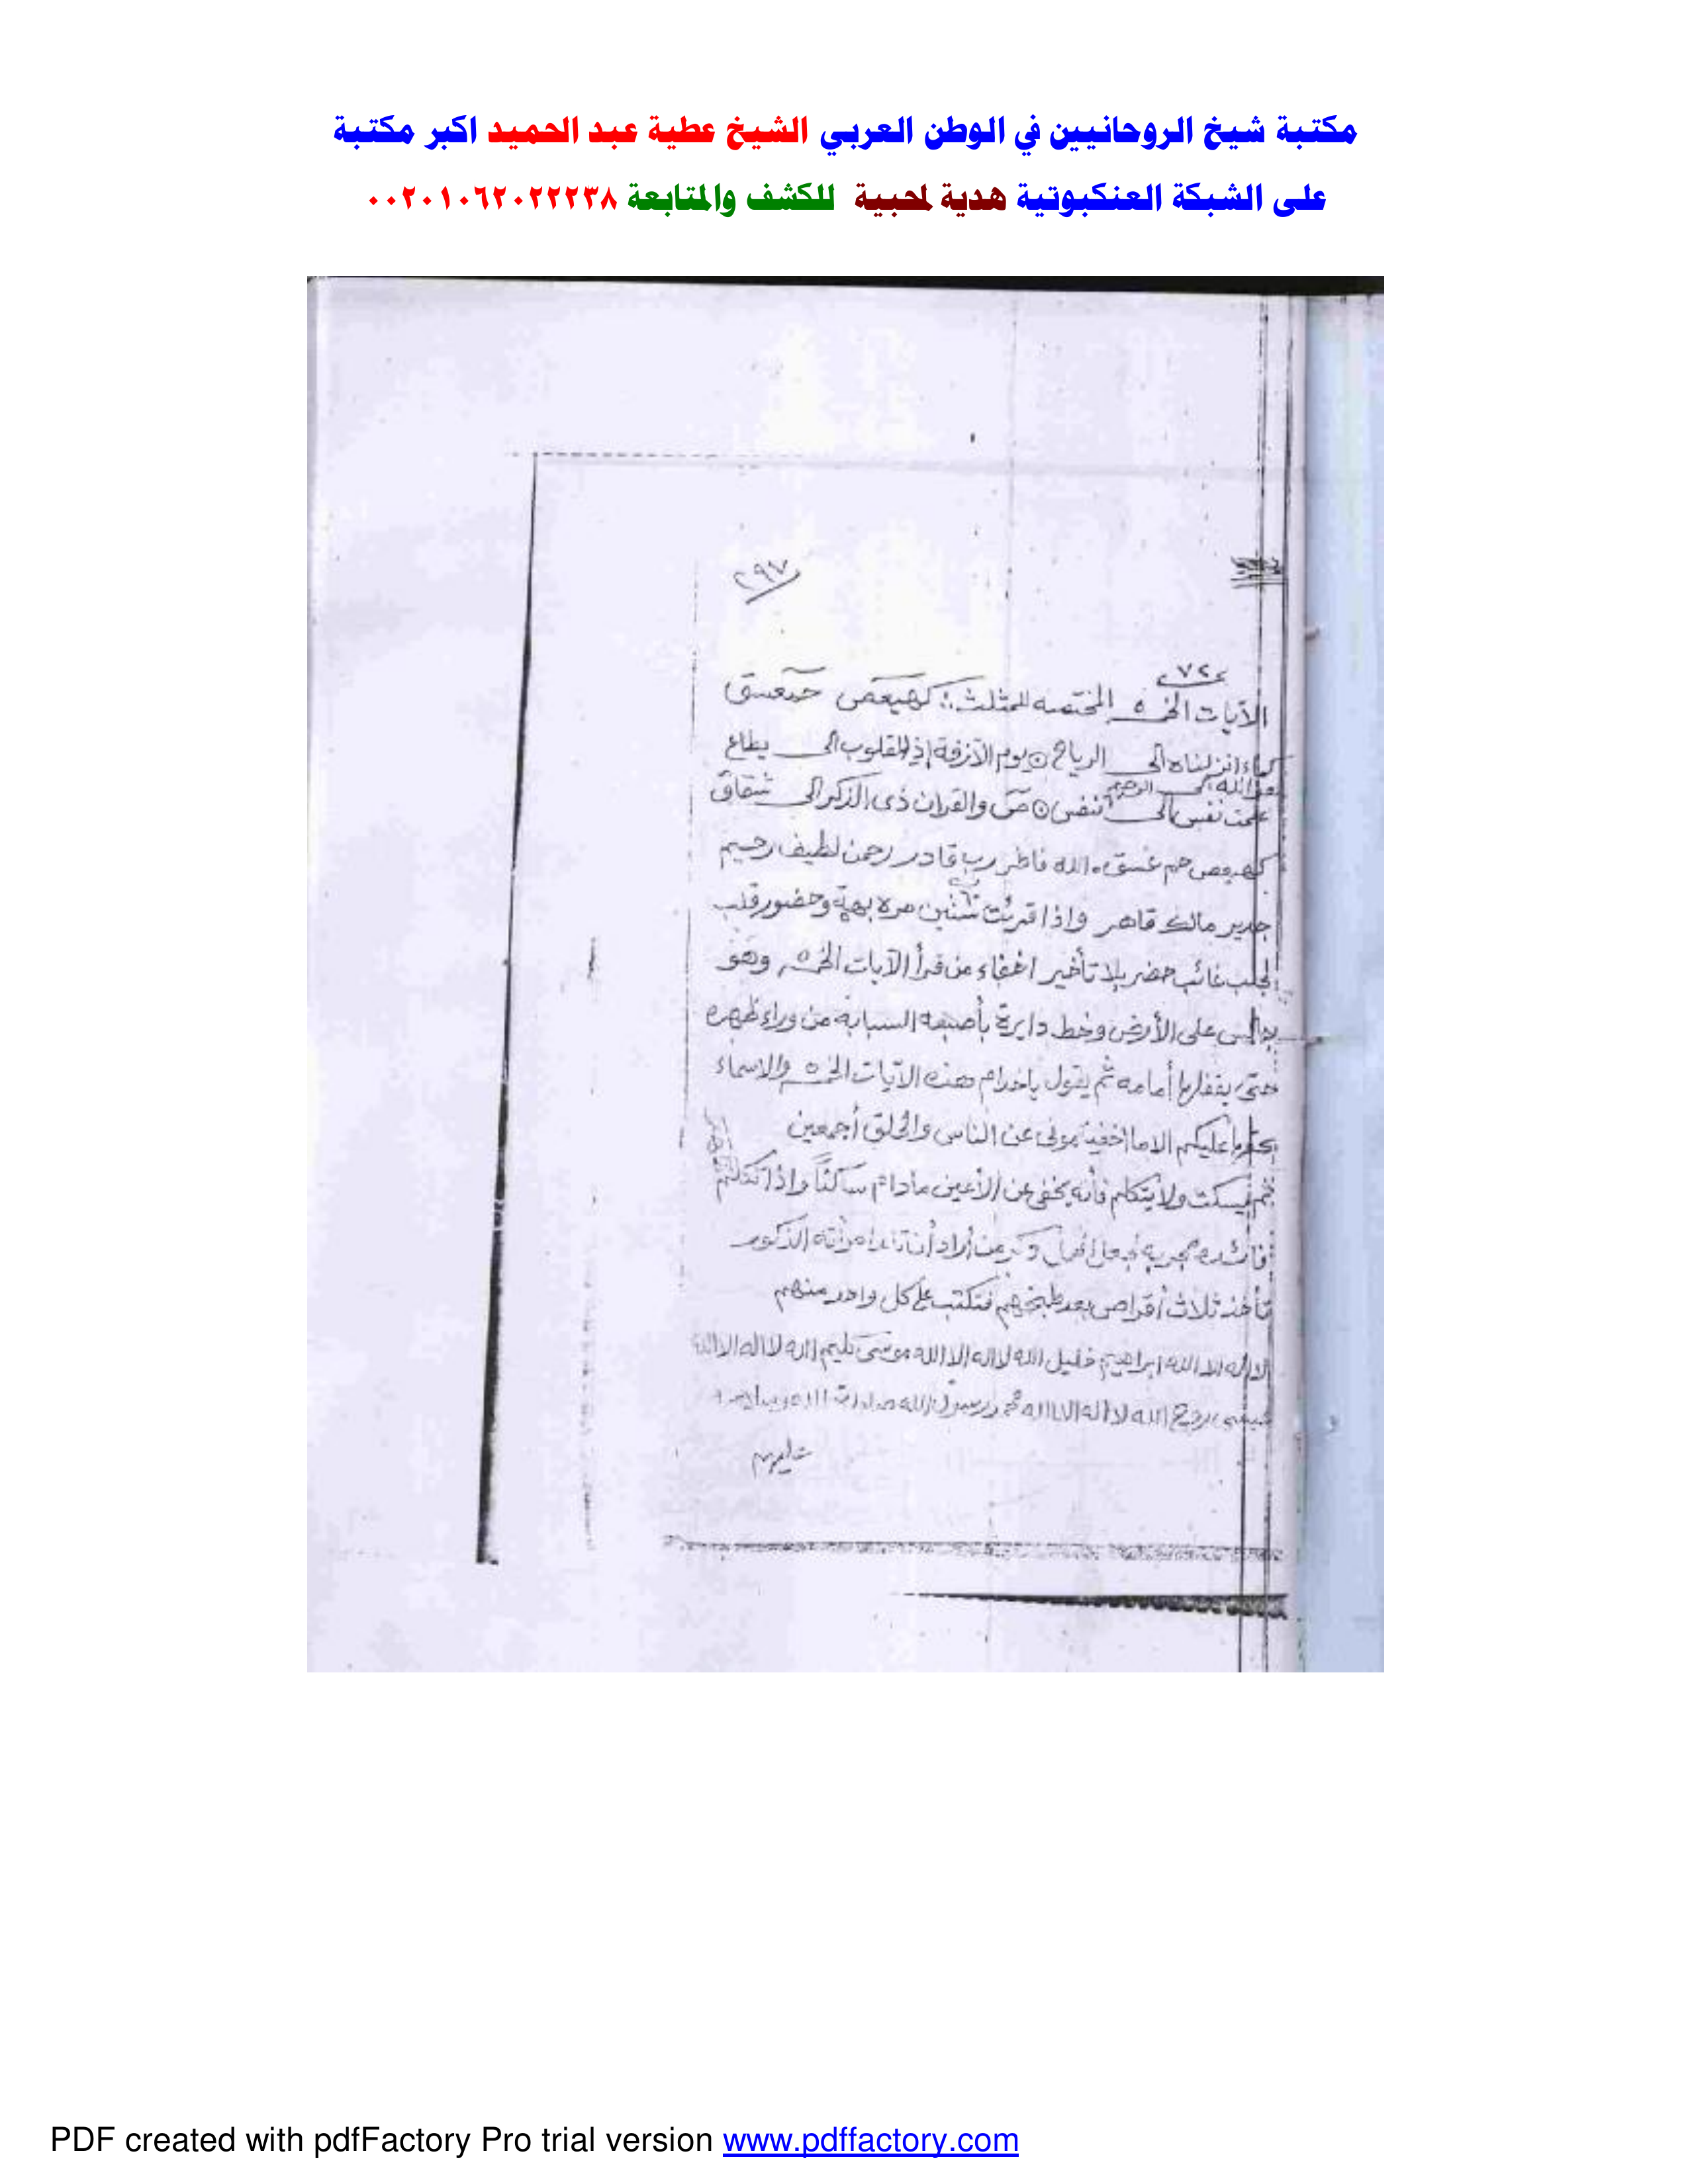 مكتبة شيخ الروحانيين في الوطن العربي الشيخ عطية عبد الحميد اكبر مكتبة
على الشبكة العنكبوتية هدية لمحبية للكشف والمتابعة ٠٠٢٠١٠٦٢٠٢٢٢٣٨
٢٩٧
الآيات الخمسه المختصه للمثلث كهيعص حمعسق
كماء انزلناه الى الرياح يوم الآزفة إذ القلوب الى يطاع
علمت نفس الى ص والقران ذى الذكر الى شقاق
كهيعص حم عسق الله فاطر رب قادر رحمن لطيف رحيم
جدير مالك قاهر واذا قرئت مره بهمة وحضور قلب
لجلب غائب حضر بلا تأخير اخفاء من قرأ الآيات الخمسه وهو
جالس على الأرض وخط دايرة بأصبعه السبابة من وراء ظهره
حتى يقفلها أمامه ثم يقول ياخدام هذه الآيات الخمسه والاسماء
عليكم الا ما اخفيتمونى عن الناس والخلق أجمعين
ثم يسكت ولا يتكلم فأنه يخفى عن الأعين مادام ساكتا واذا تكلم
فائده مجربه من أراد أن امرأته الذكور
تأخذ ثلاث أقراص بعد طبخهم فتكتب على كل واحد منهم
لا إله الا الله ابراهيم خليل الله لا اله الا الله موسى كليم الله لا اله الا الله
عيسى روح الله لا اله الا الله محمد رسول الله
عليهم
PDF created with pdfFactory Pro trial version www.pdffactory.com